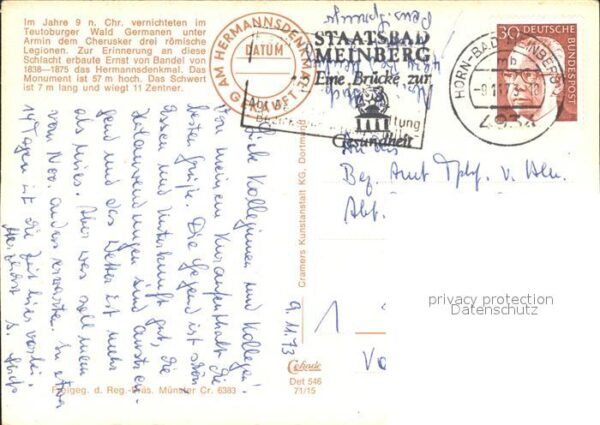 Im Jahre 9 n. Chr. vernichteten im
Teutoburger Wald Germanen unter
Armin dem Cherusker drei römische
Legionen. Zur Erinnerung an diese
Schlacht erbaute Ernst von Bandel von
1838—1875 das Hermannsdenkmal. Das
Monument ist 57 m hoch. Das Schwert
ist 7 m lang und wiegt 11 Zentner.
AM HERMANNSDENKMAL
DATUM
GEKAUFT
STAATSBAD
MEINBERG
Eine Brücke zur
Gesundheit
HORN-BAD MEINBERG
-9.11.73
4934
30 DEUTSCHE
BUNDESPOST
9.11.73
Liebe Kolleginnen und Kollegen!
Von meinem Kuraufenthalt die
besten Grüße. Die Gegend ist schön
Essen und Unterkunft gut, die
Kuranwendungen sind anstren-
gend und das Wetter ist mehr
als mies. Aber was soll man
vom Nov. anders erwarten. In etwa
14 Tagen ist die Zeit hier vorbei.
Herzlichst
An das
Bez. Amt Tphf. v. Bln.
Abt.
1
Cramers Kunstanstalt KG, Dortmund
Cekade
Det 546
71/15
Freigeg. d. Reg.-Präs. Münster Cr. 6383
privacy protection
Datenschutz